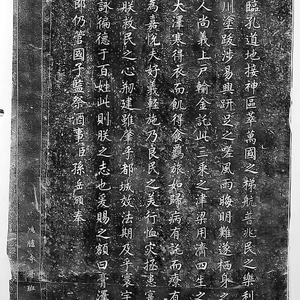 臨孔道地接神區萃萬國之梯航普兆民之樂利
川塗跋涉易興趼足之嗟風雨晦明難遂栖身之
人尚義上戶輸金託此三乘之津梁用濟四生之
大澤寒得衣而飢得食羇旅如歸病有託而療有
為嘉悅夫好義輕施乃良民之美行恤灾拯患實
朕救民之心刱建雖肇乎都城效法期及乎寰宇
詠徧德于百姓此則朕之志也爰賜之額曰膏澤
郎仍管國子監祭酒事臣孫岳頒奉